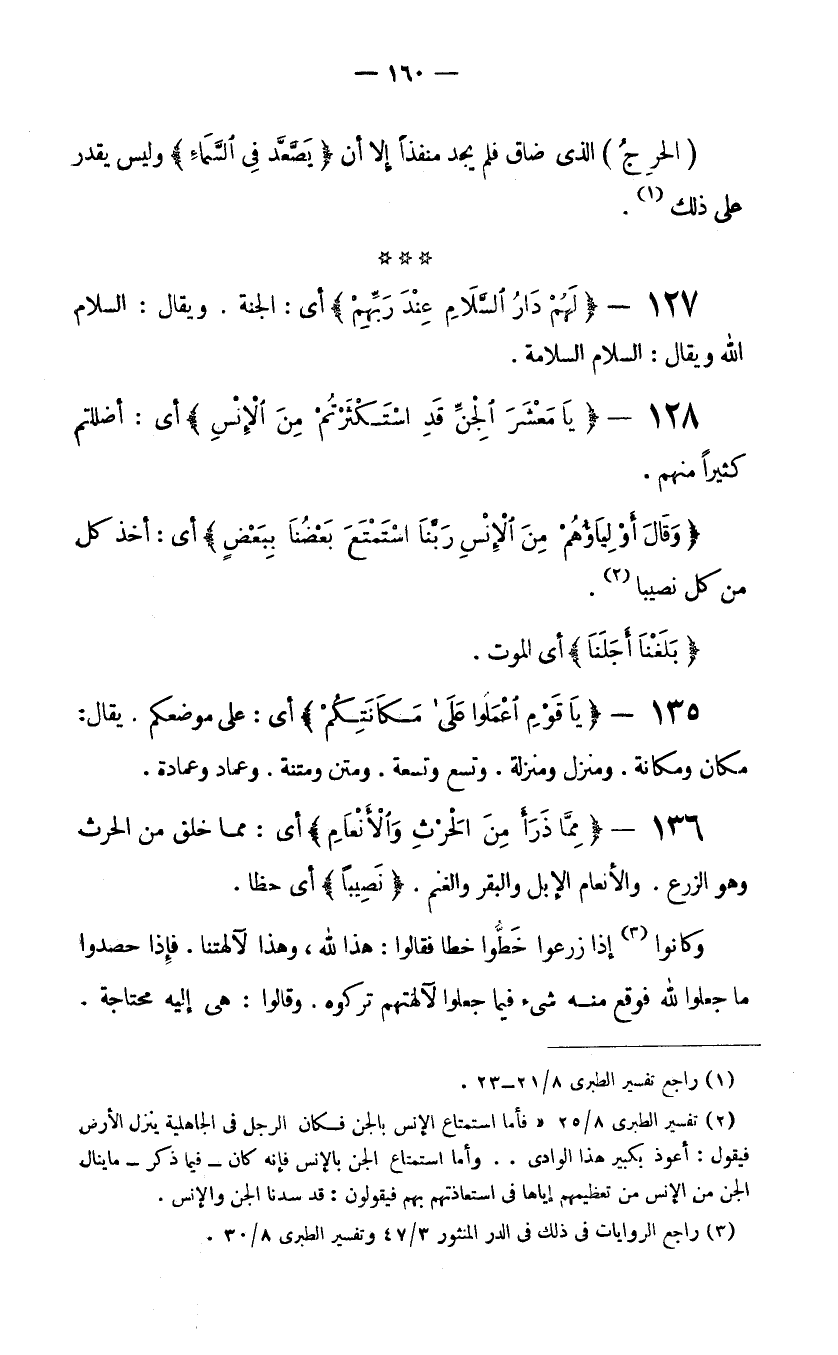 — ١٦٠ —
( الحرِجُ ) الذى ضاق فلم يجد منفذاً إلا أن ﴿ يَصَّعَّد فِى ٱلسَّمَاءِ ﴾ وليس يقدر
على ذلك (١) .
☆ ☆ ☆
١٢٧ — ﴿ لَهُمْ دَارُ ٱلسَّلَامِ عِنْدَ رَبِّهِمْ ﴾ أى : الجنة . ويقال : السلام
الله ويقال : السلام السلامة .
١٢٨ — ﴿ يَا مَعْشَرَ ٱلْجِنِّ قَدِ اسْتَكْثَرْتُمْ مِنَ ٱلْإِنْسِ ﴾ أى : أضللتم
كثيراً منهم .
﴿ وَقَالَ أَوْلِيَاؤُهُمْ مِنَ ٱلْإِنْسِ رَبَّنَا اسْتَمْتَعَ بَعْضُنَا بِبَعْضٍ ﴾ أى : أخذ كل
من كل نصيبا (٢) .
﴿ بَلَغْنَا أَجَلَنَا ﴾ أى الموت .
١٣٥ — ﴿ يَا قَوْمِ ٱعْمَلُوا عَلَى مَكَانَتِكُمْ ﴾ أى : على موضعكم . يقال :
مكان ومكانة . ومنزل ومنزلة . وتسع وتسعة . ومتن ومتنة . وعماد وعمادة .
١٣٦ — ﴿ مِمَّا ذَرَأَ مِنَ الْحَرْثِ وَٱلْأَنْعَامِ ﴾ أى : مما خلق من الحرث
وهو الزرع . والأنعام الإبل والبقر والغنم . ﴿ نَصِيباً ﴾ أى حظا .
وكانوا (٣) إذا زرعوا خَطُّوا خطا فقالوا : هذا لله ، وهذا لآلهتنا . فإذا حصدوا
ما جعلوا لله فوقع منه شىء فيما جعلوا لآلهتهم تركوه . وقالوا : هى إليه محتاجة .
(١) راجع تفسير الطبرى ٢١/٨—٢٣ .
(٢) تفسير الطبرى ٢٥/٨ « فأما استمتاع الإنس بالجن فكان الرجل فى الجاهلية ينزل الأرض
فيقول : أعوذ بكبير هذا الوادى . . وأما استمتاع الجن بالإنس فإنه كان — فيما ذكر — ماينال
الجن من الإنس من تعظيمهم إياها فى استعاذتهم بهم فيقولون : قد سدنا الجن والإنس .
(٣) راجع الروايات فى ذلك فى الدر المنثور ٤٧/٣ وتفسير الطبرى ٣٠/٨ .